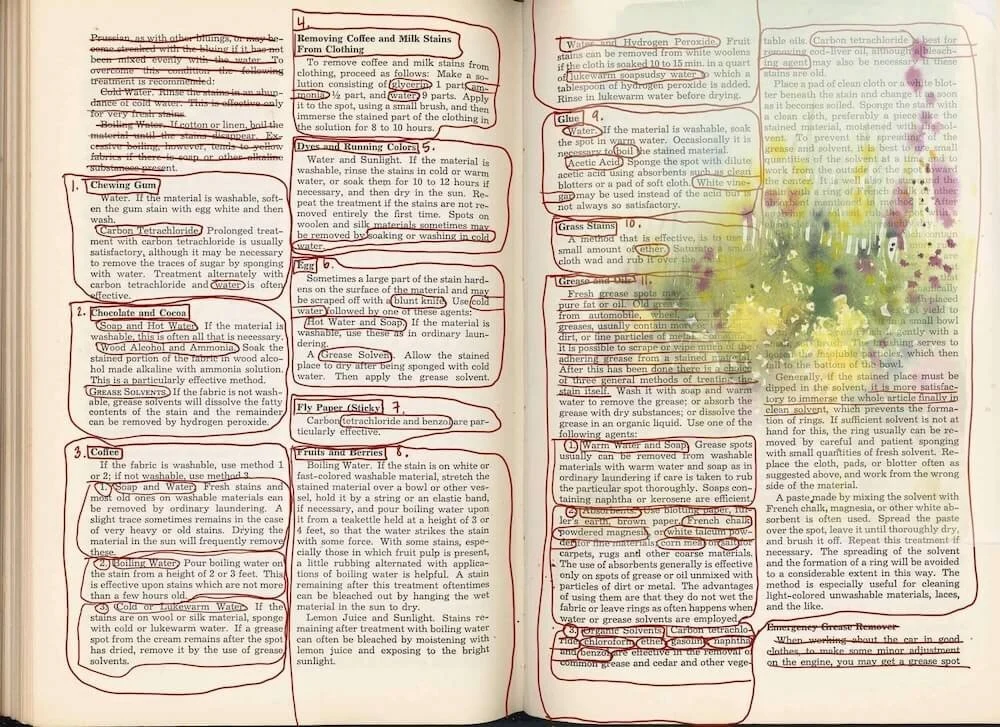 Prussian, as with other bluings, or may be-
come streaked with the bluing if it has not
been mixed evenly with the water. To
overcome this condition the following
treatment is recommended:
Cold Water. Rinse the stains in an abun-
dance of cold water. This is effective only
for very fresh stains.
Boiling Water. If cotton or linen, boil the
material until the stains disappear. Ex-
cessive boiling, however, tends to yellow
fabrics if there is soap or other alkaline
substances present.
1. Chewing Gum
Water. If the material is washable, soft-
en the gum stain with egg white and then
wash.
Carbon Tetrachloride. Prolonged treat-
ment with carbon tetrachloride is usually
satisfactory, although it may be necessary
to remove the traces of sugar by sponging
with water. Treatment alternately with
carbon tetrachloride and water is often
effective.
2. Chocolate and Cocoa
Soap and Hot Water. If the material is
washable, this is often all that is necessary.
Wood Alcohol and Ammonia. Soak the
stained portion of the fabric in wood alco-
hol made alkaline with ammonia solution.
This is a particularly effective method.
GREASE SOLVENTS. If the fabric is not wash-
able, grease solvents will dissolve the fatty
contents of the stain and the remainder
can be removed by hydrogen peroxide.
3. Coffee
If the fabric is washable, use method 1
or 2; if not washable, use method 3.
1. Soap and Water. Fresh stains and
most old ones on washable materials can
be removed by ordinary laundering. A
slight trace sometimes remains in the case
of very heavy or old stains. Drying the
material in the sun will frequently remove
these.
2. Boiling Water. Pour boiling water on
the stain from a height of 2 or 3 feet. This
is effective upon stains which are not more
than a few hours old.
3. Cold or Lukewarm Water. If the
stains are on wool or silk material, sponge
with cold or lukewarm water. If a grease
spot from the cream remains after the spot
has dried, remove it by the use of grease
solvents.
4.
Removing Coffee and Milk Stains
From Clothing
To remove coffee and milk stains from
clothing, proceed as follows: Make a so-
lution consisting of glycerin 1 part, am-
monia ½ part, and water 9 parts. Apply
it to the spot, using a small brush, and then
immerse the stained part of the clothing in
the solution for 8 to 10 hours.
Dyes and Running Colors 5.
Water and Sunlight. If the material is
washable, rinse the stains in cold or warm
water, or soak them for 10 to 12 hours if
necessary, and then dry in the sun. Re-
peat the treatment if the stains are not re-
moved entirely the first time. Spots on
woolen and silk materials sometimes may
be removed by soaking or washing in cold
water.
Egg 6.
Sometimes a large part of the stain hard-
ens on the surface of the material and may
be scraped off with a blunt knife. Use cold
water followed by one of these agents:
Hot Water and Soap. If the material is
washable, use these as in ordinary laun-
dering.
A Grease Solvent. Allow the stained
place to dry after being sponged with cold
water. Then apply the grease solvent.
Fly Paper (Sticky) 7.
Carbon tetrachloride and benzol are par-
ticularly effective.
Fruits and Berries 8.
Boiling Water. If the stain is on white or
fast-colored washable material, stretch the
stained material over a bowl or other ves-
sel, hold it by a string or an elastic band,
if necessary, and pour boiling water upon
it from a teakettle held at a height of 3 or
4 feet, so that the water strikes the stain
with some force. With some stains, espe-
cially those in which fruit pulp is present,
a little rubbing alternated with applica-
tions of boiling water is helpful. A stain
remaining after this treatment oftentimes
can be bleached out by hanging the wet
material in the sun to dry.
Lemon Juice and Sunlight. Stains re-
maining after treatment with boiling water
can often be bleached by moistening with
lemon juice and exposing to the bright
sunlight.
Water and Hydrogen Peroxide. Fruit
stains can be removed from white woolens
if the cloth is soaked 10 to 15 min. in a quart
of lukewarm soapsudsy water to which a
tablespoon of hydrogen peroxide is added.
Rinse in lukewarm water before drying.
Glue 9.
Water. If the material is washable, soak
the spot in warm water. Occasionally it is
necessary to boil the stained material.
Acetic Acid. Sponge the spot with dilute
acetic acid using absorbents such as clean
blotters or a pad of soft cloth. White vine-
gar may be used instead of the acid but
not always so satisfactory.
Grass Stains 10.
A method that is effective, is to use
small amount of ether. Saturate a
cloth wad and rub it over the
Grease and Oils 11.
Fresh grease spots may
pure fat or oil. Old grease
from automobile, wheel,
greases, usually contain more
dirt, or fine particles of metal.
it is possible to scrape or wipe much
adhering grease from a stained material.
After this has been done there is a choice
of three general methods of treating the
stain itself. Wash it with soap and warm
water to remove the grease; or absorb the
grease with dry substances; or dissolve the
grease in an organic liquid. Use one of the
following agents:
1. Warm Water and Soap. Grease spots
usually can be removed from washable
materials with warm water and soap as in
ordinary laundering if care is taken to rub
the particular spot thoroughly. Soaps con-
taining naphtha or kerosene are efficient
2. Absorbents. Use blotting paper, ful-
ler's earth, brown paper, French chalk,
powdered magnesia, or white talcum pow-
der for fine materials; corn meal or salt for
carpets, rugs and other coarse materials.
The use of absorbents generally is effective
only on spots of grease or oil unmixed with
particles of dirt or metal. The advantages
of using them are that they do not wet the
fabric or leave rings as often happens when
water or grease solvents are employed.
3. Organic Solvents. Carbon tetrachlo-
ride, chloroform, ether, gasoline, naphtha
and benzol are effective in the removal of
common grease and cedar and other vege-
table oils. Carbon tetrachloride is best for
removing cod-liver oil, although a bleach-
ing agent may also be necessary if these
stains are old.
Place a pad of clean cloth or a white blot-
ter beneath the stain and change it as soon
as it becomes soiled. Sponge the stain with
a clean cloth, preferably a piece of the
stained material, moistened with the sol-
vent. To prevent the spreading of
solvent, it is best to use small
quantities of the solvent at a
work from
the center. It is well also to
with a ring of French chalk
placed
a small bowl
gently with a
serves to
particles, which then
fall to the bottom of the bowl.
Generally, if the stained place must be
dipped in the solvent, it is more satisfac-
tory to immerse the whole article finally in
clean solvent, which prevents the forma-
tion of rings. If sufficient solvent is not at
hand for this, the ring usually can be re-
moved by careful and patient sponging
with small quantities of fresh solvent. Re-
place the cloth, pads, or blotter often as
suggested above, and work from the wrong
side of the material.
A paste made by mixing the solvent with
French chalk, magnesia, or other white ab-
sorbent is often used. Spread the paste
over the spot, leave it until thoroughly dry,
and brush it off. Repeat this treatment if
necessary. The spreading of the solvent
and the formation of a ring will be avoided
to a considerable extent in this way. The
method is especially useful for cleaning
light-colored unwashable materials, laces,
and the like.
Emergency Grease Remover
When working about the car in good
clothes, to make some minor adjustment
on the engine, you may get a grease spot